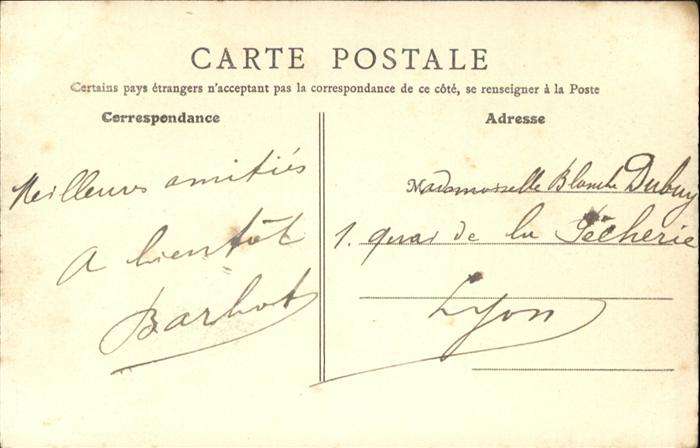 CARTE POSTALE
Certains pays étrangers n'acceptant pas la correspondance de ce côté, se renseigner à la Poste
Correspondance
Adresse
Meilleures amitiés
A bientôt
Barbot
Mademoiselle Blanche Dubuy
1. quai de la Pêcherie
Lyon